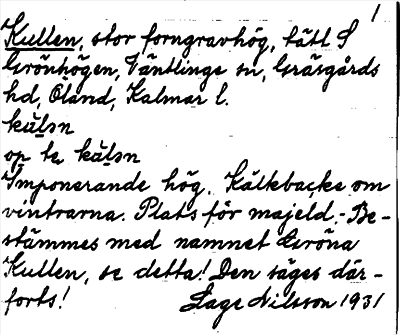 1
Kullen, stor forngravhög, tätt S
Grönhögen, Väntlinge sn, Gräsgårds
hd, Öland, Kalmar l.
kúlən
op te kúlən
Imponerande hög. Kälkbacke om
vintrarna. Plats för majeld. - Be-
stämmes med namnet Gröna
Kullen, se detta! Den säges där-
forts! Lage Nilsson 1931